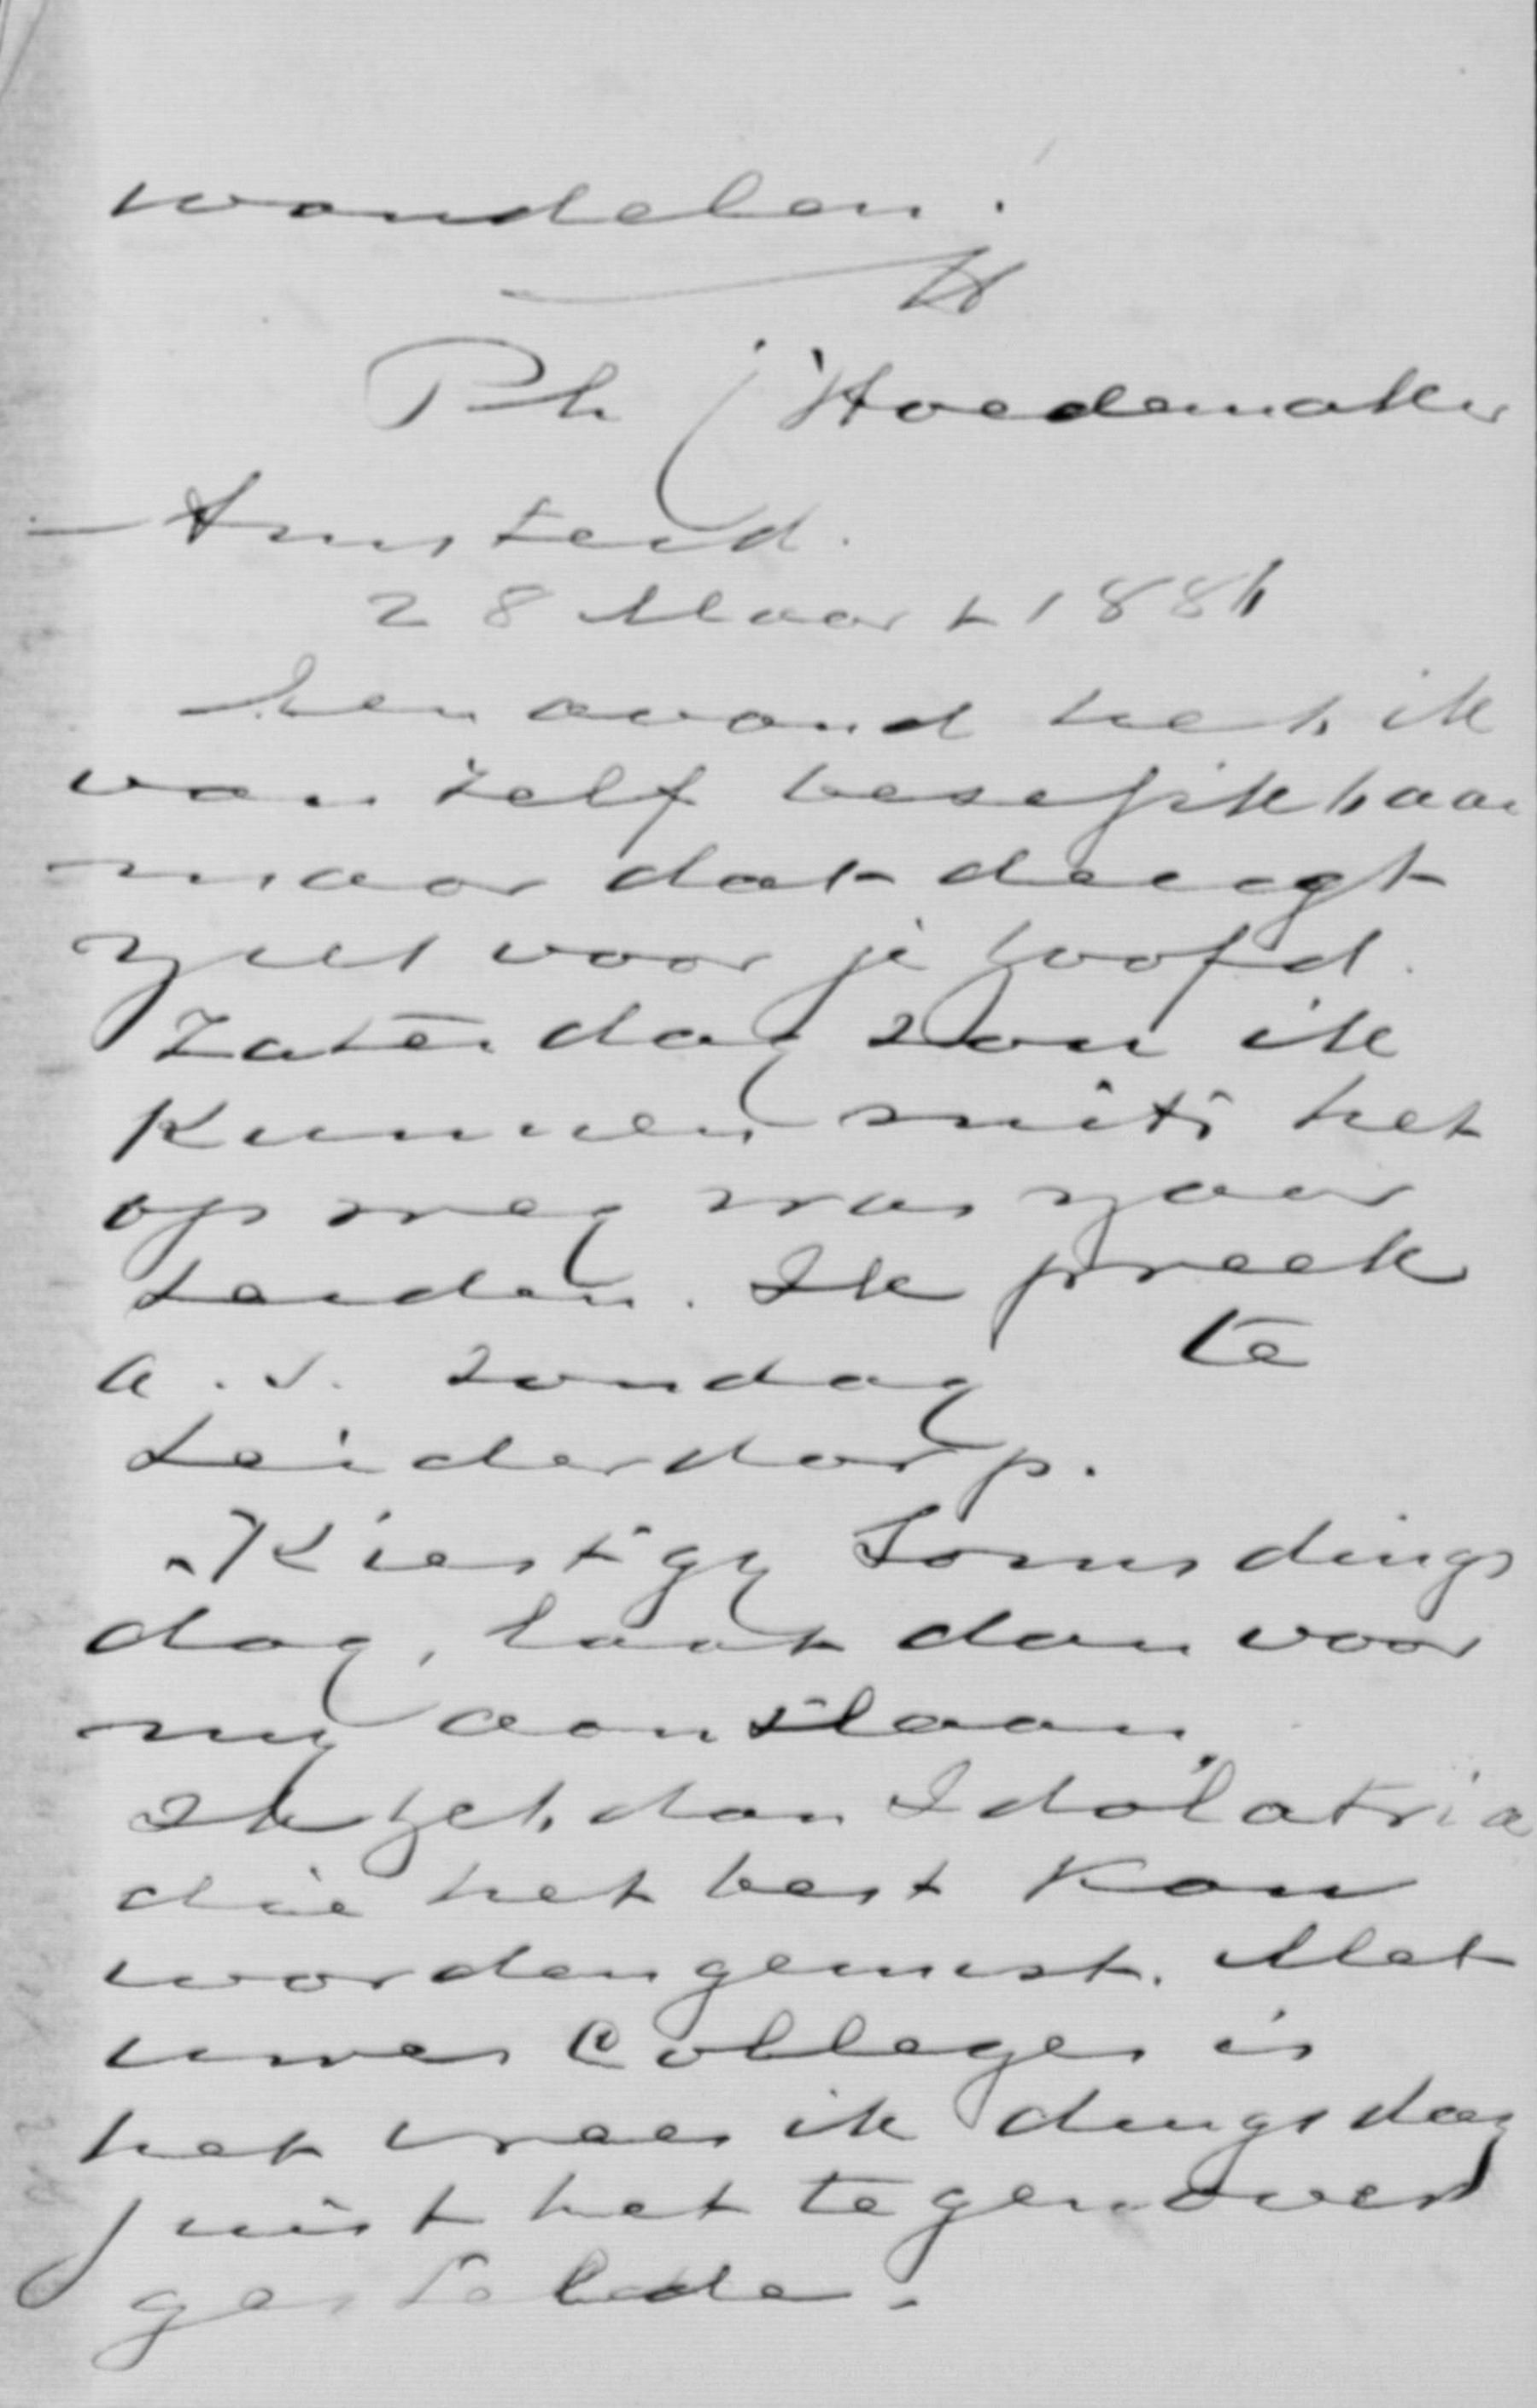 wandelen!
tt
Ph j Hoedemaker
Amsterd.
28 Maart 188
Een avond heb ik
van zelf beschikbaar
maar dat deugt
niet voor je hoofd.
Zaterdag zou ik
kunnen mits het
op weg was naar
Leiden. Ik preek
a.s. Zondag te
Leiderdorp.
Kiest gy soms dings
dag, laat dan voor
my aanslaan.
Ik heb dan Idolatria
die het best kan
worden gemist. Met
uwe Colleges is
het vrees ik dingsdag
juist het tegenover
gestelde.